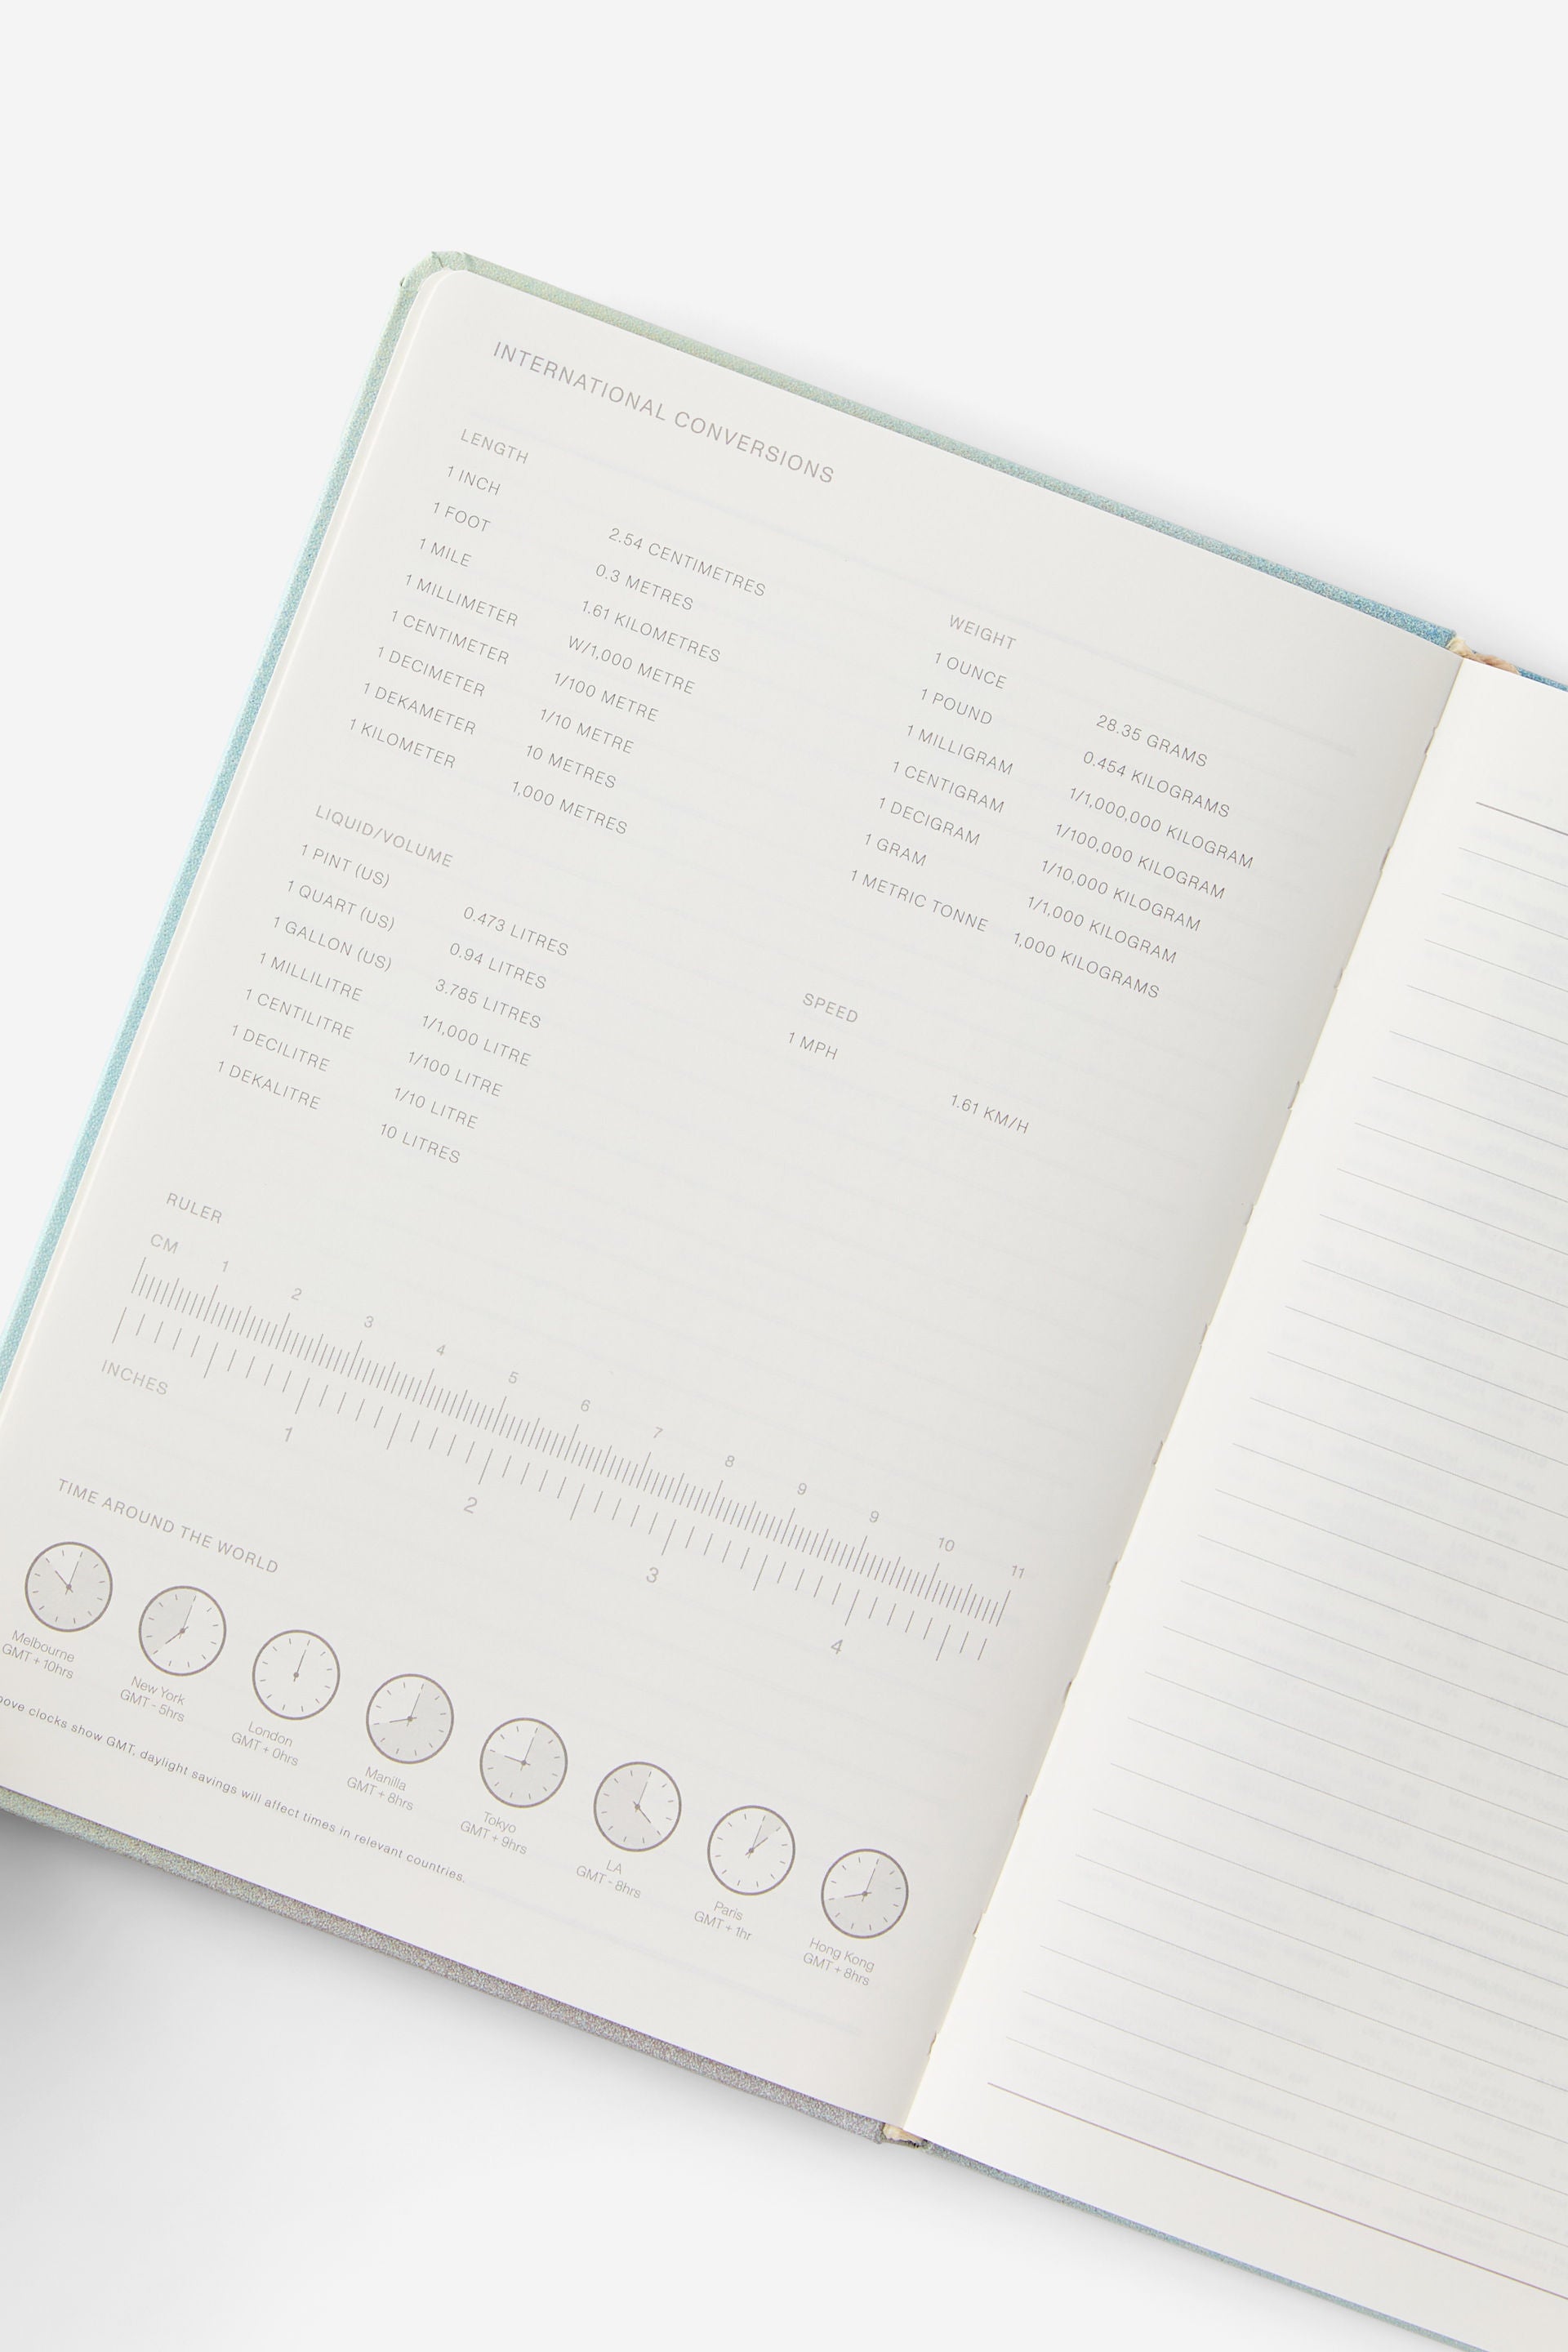 INTERNATIONAL CONVERSIONS
LENGTH
1 INCH 2.54 CENTIMETRES
1 FOOT 0.3 METRES
1 MILE 1.61 KILOMETRES
1 MILLIMETER W/1,000 METRE
1 CENTIMETER 1/100 METRE
1 DECIMETER 1/10 METRE
1 DEKAMETER 10 METRES
1 KILOMETER 1,000 METRES
LIQUID/VOLUME
1 PINT (US) 0.473 LITRES
1 QUART (US) 0.94 LITRES
1 GALLON (US) 3.785 LITRES
1 MILLILITRE 1/1,000 LITRE
1 CENTILITRE 1/100 LITRE
1 DECILITRE 1/10 LITRE
1 DEKALITRE 10 LITRES
WEIGHT
1 OUNCE 28.35 GRAMS
1 POUND 0.454 KILOGRAMS
1 MILLIGRAM 1/1,000,000 KILOGRAM
1 CENTIGRAM 1/100,000 KILOGRAM
1 DECIGRAM 1/10,000 KILOGRAM
1 GRAM 1/1,000 KILOGRAM
1 METRIC TONNE 1,000 KILOGRAMS
SPEED
1 MPH 1.61 KM/H
RULER
CM
1 2 3 4 5 6 7 8 9 9 10 11
INCHES
1 2 3 4
TIME AROUND THE WORLD
Melbourne
GMT + 10hrs
New York
GMT - 5hrs
London
GMT + 0hrs
Manilla
GMT + 8hrs
Tokyo
GMT + 9hrs
LA
GMT - 8hrs
Paris
GMT + 1hr
Hong Kong
GMT + 8hrs
clocks show GMT, daylight savings will affect times in relevant countries.